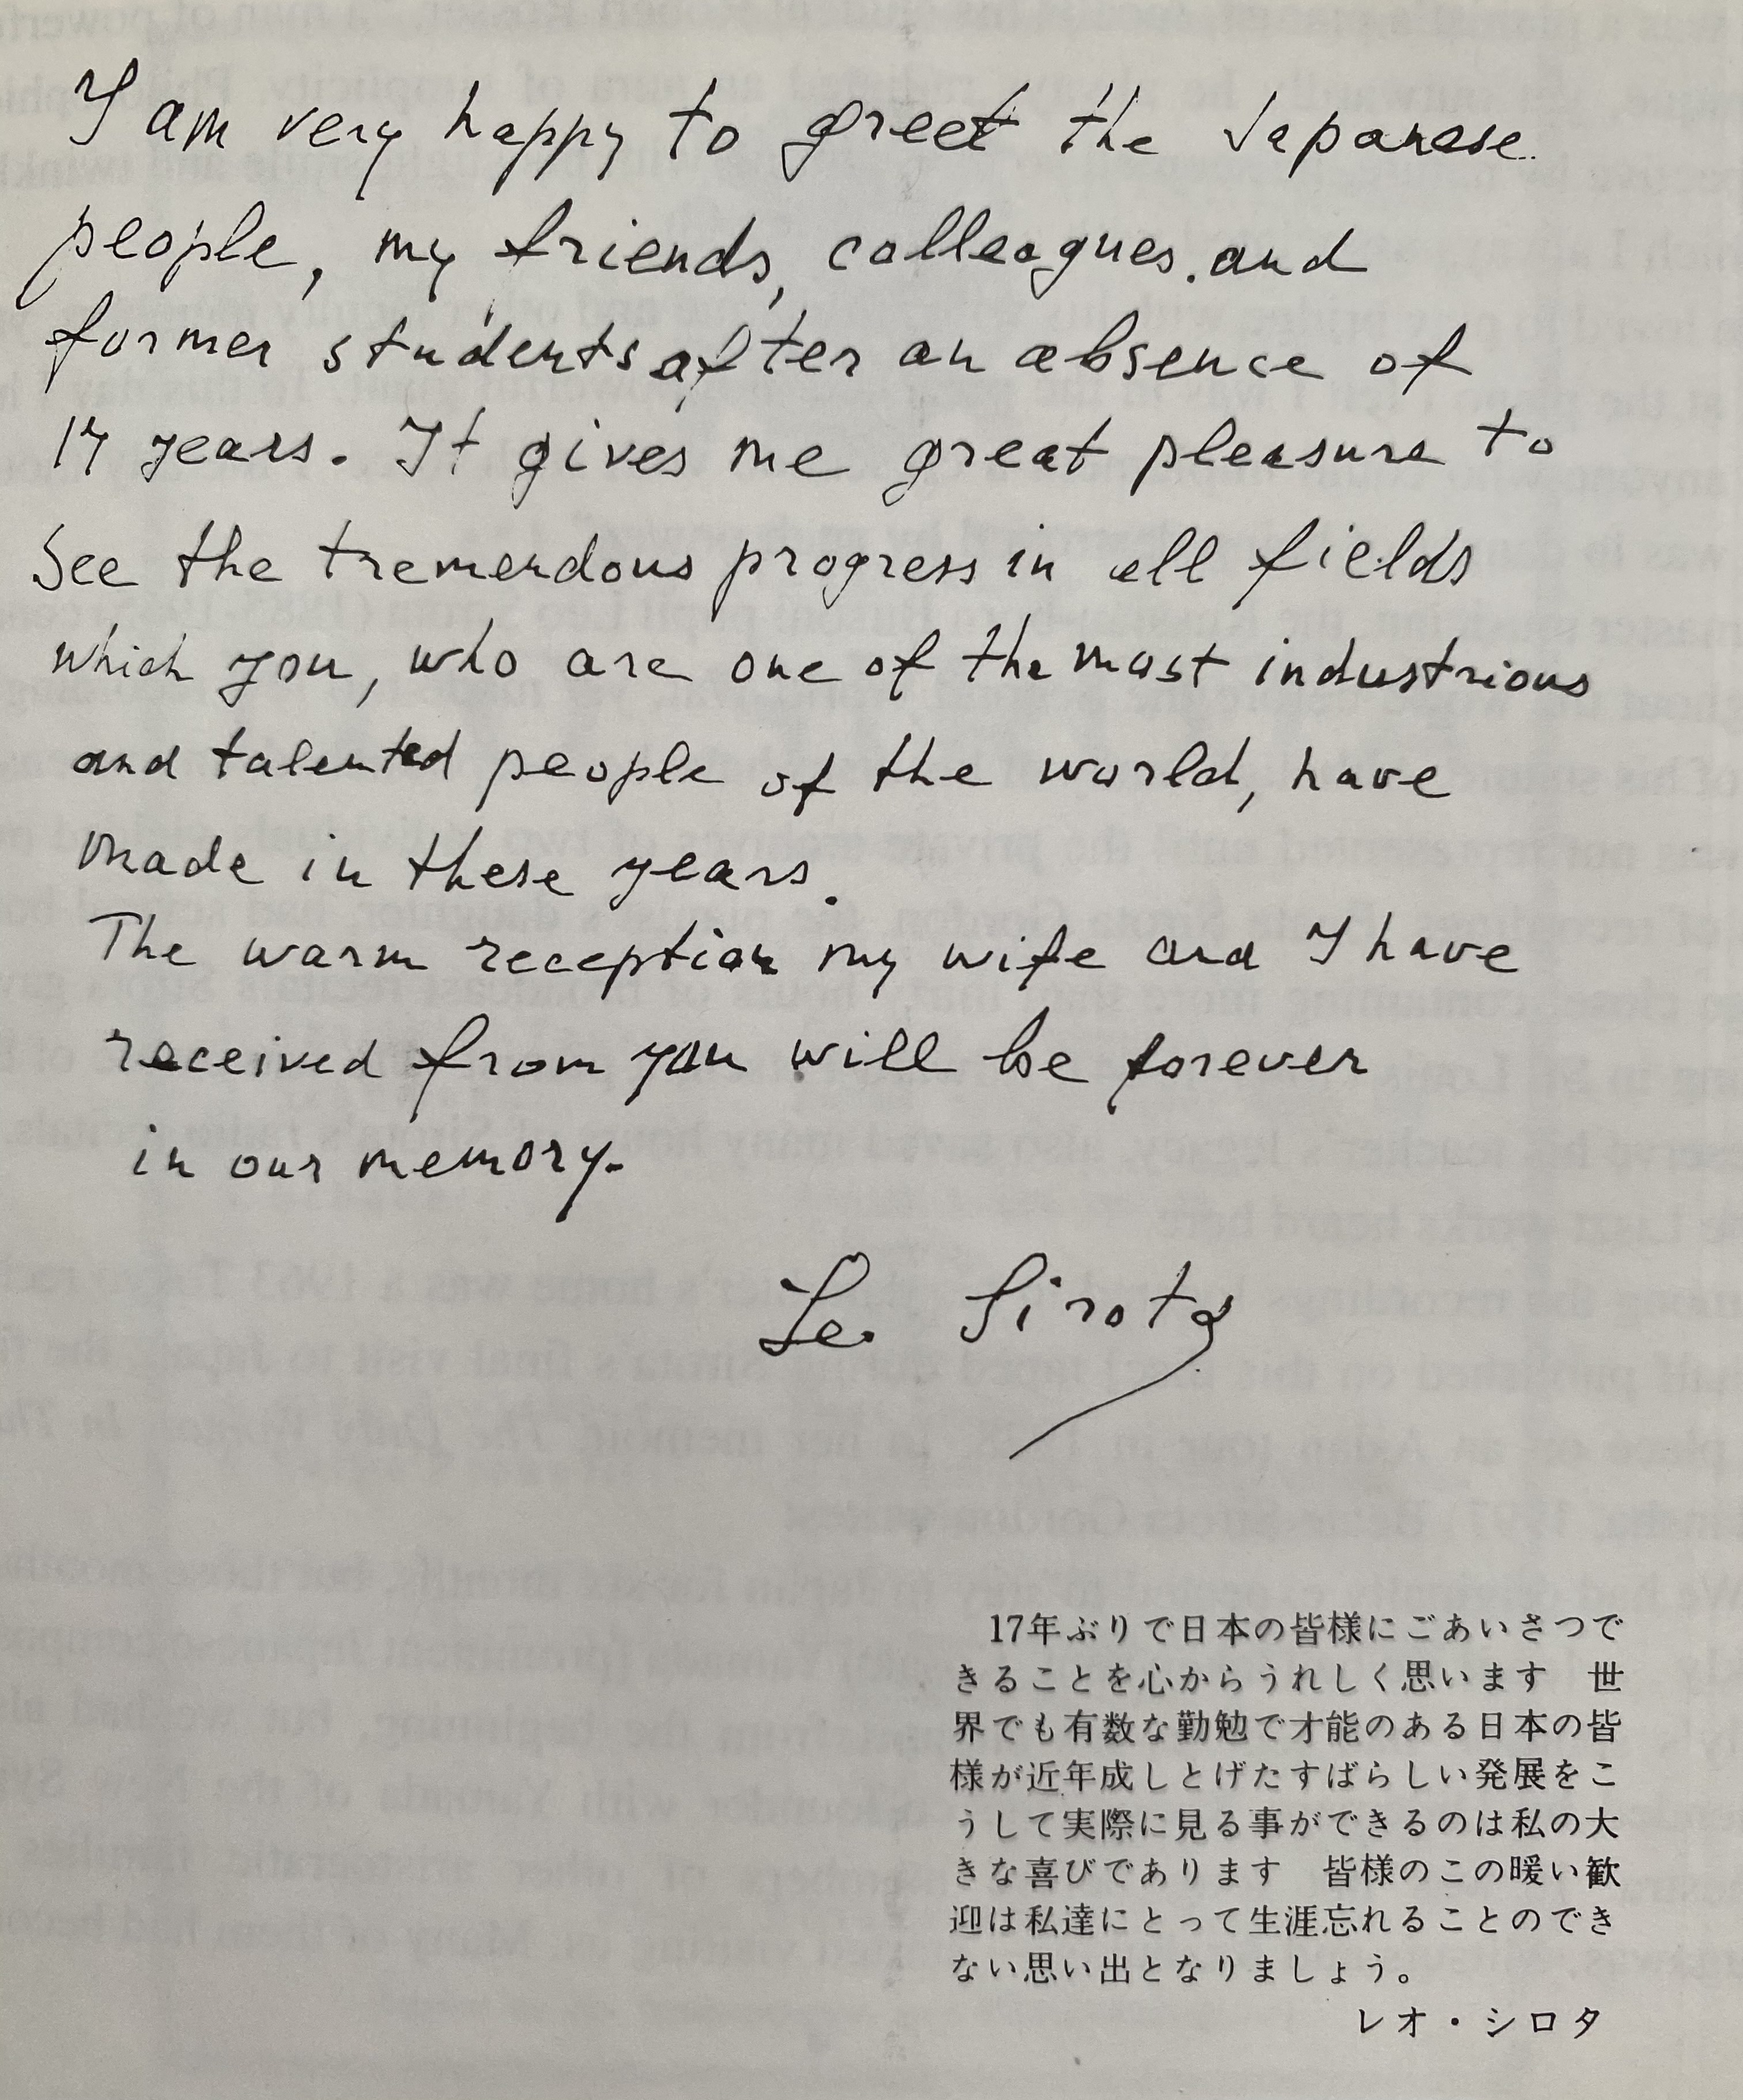 I am very happy to greet the Japanese
people, my friends, colleagues. and
former students after an absence of
17 years. It gives me great pleasure to
see the tremendous progress in all fields
which you, who are one of the most industrious
and talented people of the world, have
made in these years.
The warm reception my wife and I have
received from you will be forever
in our memory.
Leo Sirota
17年ぶりで日本の皆様にごあいさつで
きることを心からうれしく思います　世
界でも有数な勤勉で才能のある日本の皆
様が近年成しとげたすばらしい発展をこ
うして実際に見る事ができるのは私の大
きな喜びであります　皆様のこの暖い歓
迎は私達にとって生涯忘れることのでき
ない思い出となりましょう。
レオ・シロタ